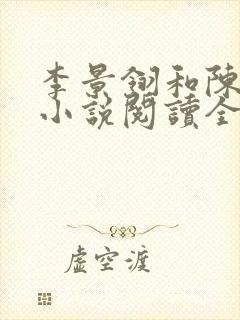 李景翎和陳
小說閱讀全
虛空渡